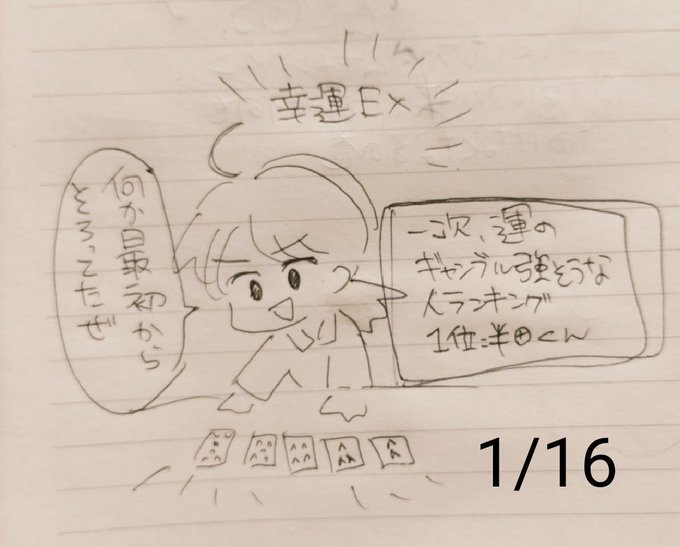 幸運EX
何か最初から
そろってたぜ
一次、運の
ギャンブル強そうな
人ランキング
1位:半田くん
1/16